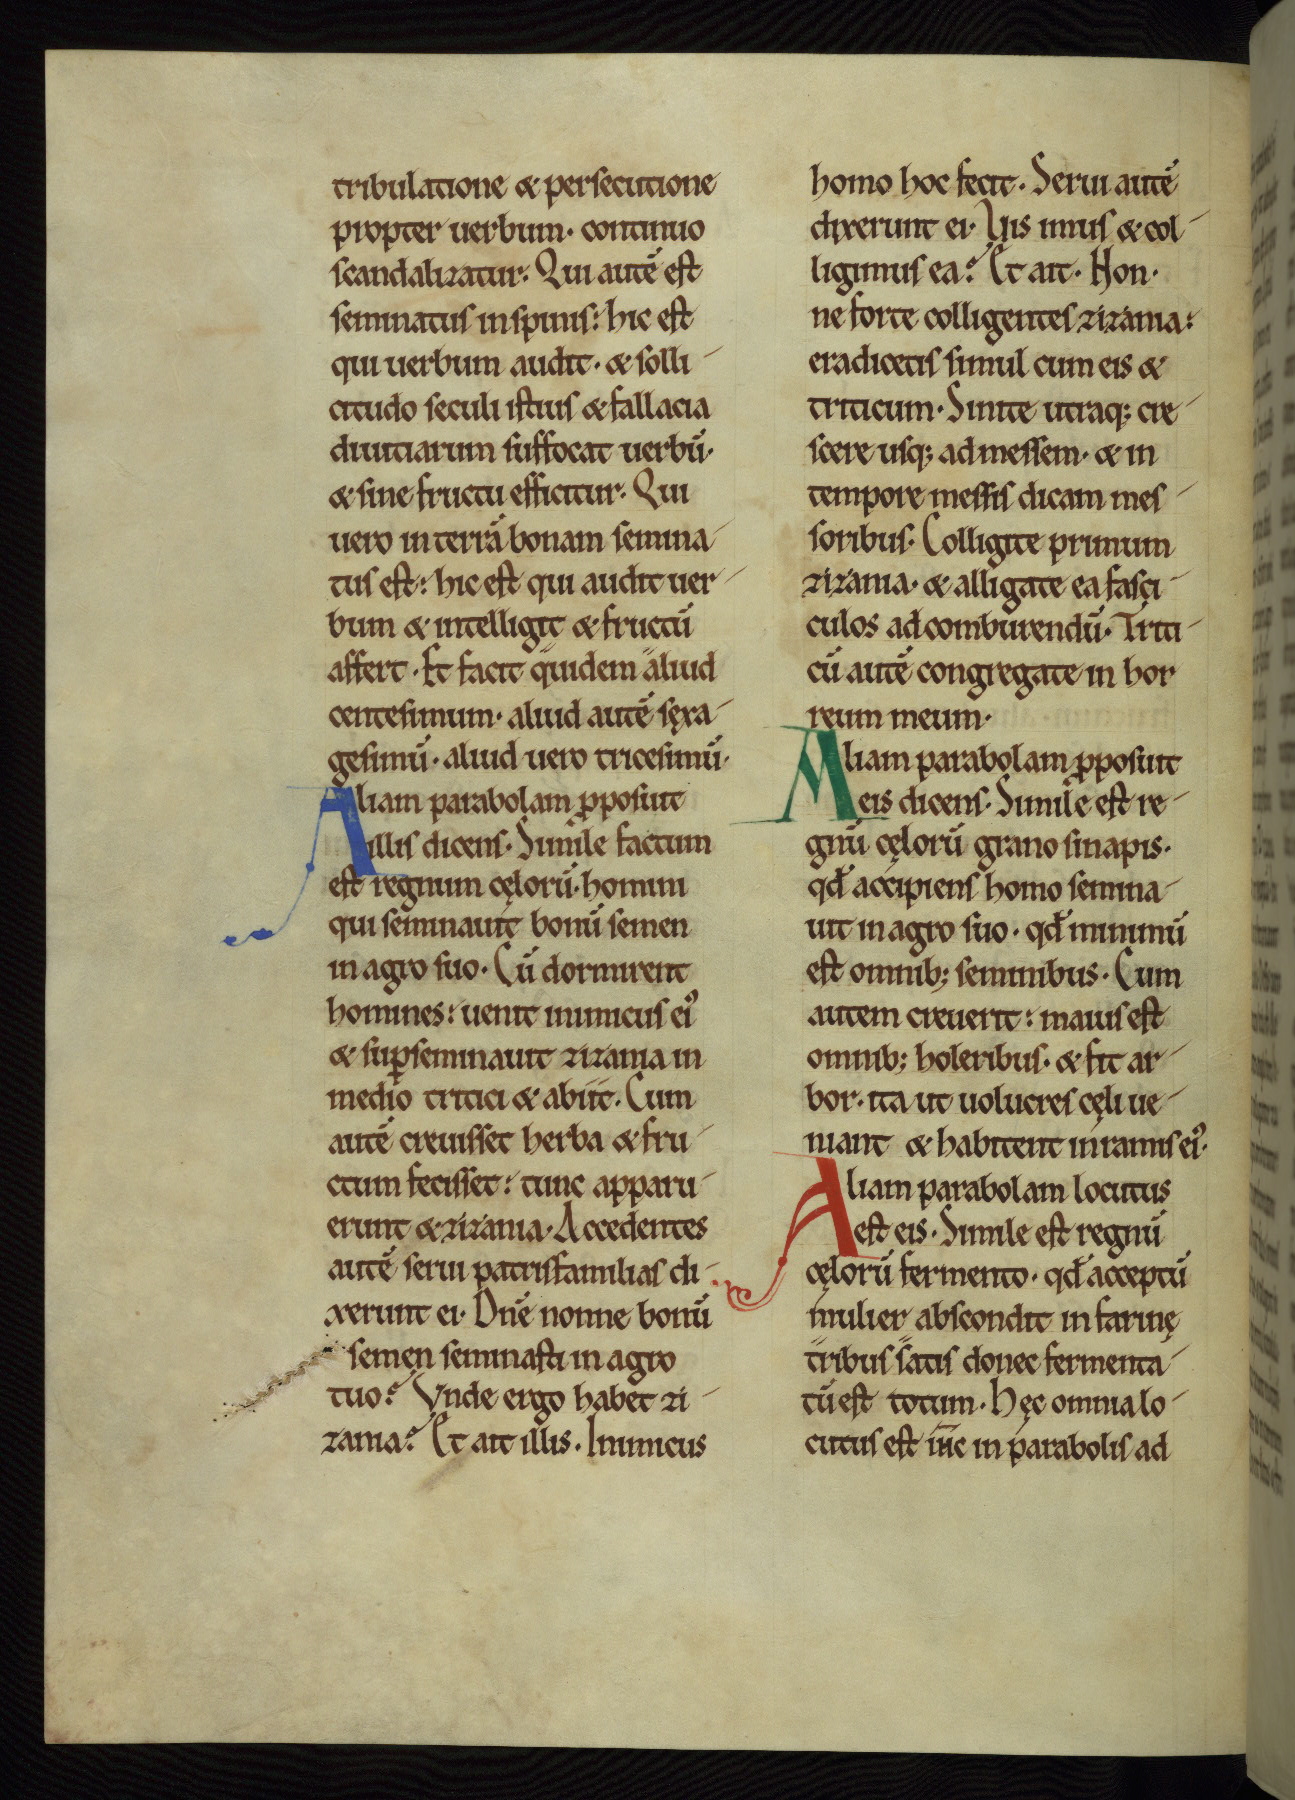 tribulatione & persecutione
propter uerbum· continuo
scandalizatur. Qui autē est
seminatus in spinis: hic est
qui uerbum audit· & solli-
citudo seculi istius & fallacia
diuitiarum suffocat uerbū·
& sine fructu efficitur. Qui
uero in terrā bonam semina-
tus est: hic est qui audit uer-
bum & intelligit & fructū
affert· Et facit quidem aliud
centesimum· aliud autē sęxa-
gesimū· aliud uero tricesimū·
Aliam parabolam ꝓposuit
illis dicens· Simile factum
est regnum cęlorū homini
qui seminauit bonū semen
in agro suo· Cū dormirent
homines: uenit inimicus ei᾽
& suꝑseminauit zizania in
medio tritici & abiit. Cum
autē creuisset herba & fru-
ctum fecisset: tunc apparu-
erunt & zizania· Accedentes
autē serui patrisfamilias di-
xerunt ei· Dn̄e nonne bonū
semen seminasti in agro
tuo? Vnde ergo habet zi-
zania? Et ait illis· Inimicus
homo hoc fecit· Serui autē
dixerunt ei· Vis imus & col-
ligimus ea? Et ait· Non·
ne forte colligentes zizania:
eradicetis simul cum eis &
triticum· Sinite utraq; cre-
scere usq; ad messem· & in
tempore messis dicam mes-
soribus· Colligite primum
zizania· & alligate ea fasci-
culos ad comburendū· Triti-
cū autē congregate in hor
reum meum·
Aliam parabolam ꝓposuit
eis dicens· Simile est re-
gnū cęlorū grano sinapis·
qđ accipiens homo semina-
uit in agro suo· qđ minimū
est omnib; seminibus· Cum
autem creuerit: maius est
omnib; holeribus· & fit ar-
bor· ita ut uolucres cęli ue-
niant & habitent in ramis ei᾽·
Aliam parabolam locutus
est eis· Simile est regnū
cęlorū fermento· qđ acceptū
mulier abscondit in farinę
tribus satis donec fermenta-
tū est totum· Hęc omnia lo-
cutus est ih̄c in parabolis ad